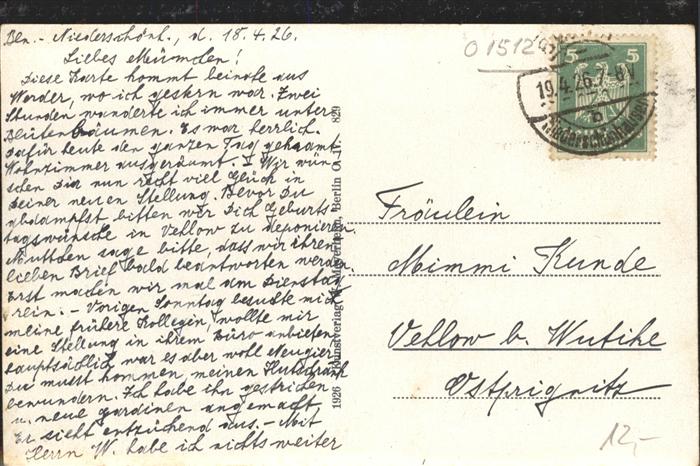 Bln.- Niederschönh., d. 18.4.26.
Liebes Mümchen!
Diese Karte kommt beinahe aus
Werder, wo ich gestern war. Zwei
Stunden wanderte ich immer unter
Blütenbäumen. Es war herrlich.
Dafür heute den ganzen Tag gekramt
Wohnzimmer ausgeräumt. Wir wün-
schen Dir nun recht viel Glück in
Deiner neuen Stellung. Bevor Du
abdampfst bitten wir Dich Geburts
tagswünsche in Vehlow zu deponieren.
Muttchen sage bitte, dass wir ihren
lieben Brief bald beantworten werden
Erst machen wir mal am Dienstag
rein. - Vorigen Sonntag besuchte mich
meine frühere Kollegin, wollte mir
eine Stellung in ihrem Büro anbieten
hauptsächlich war es aber wohl Neugier
Du musst kommen, meinen
bewundern. Ich habe ihn gestrichen
u. neue Gardinen angemacht
Er sieht entzückend aus. - Mit
Herrn W. habe ich nichts weiter
1926 Kunstverlag J. Meyerheim, Berlin 829
01512
5 5
19.4.26.7-8V
Niederschönhausen
Fräulein
Mimmi Kunde
Vehlow b. Wutike
Ostprignitz
12,-